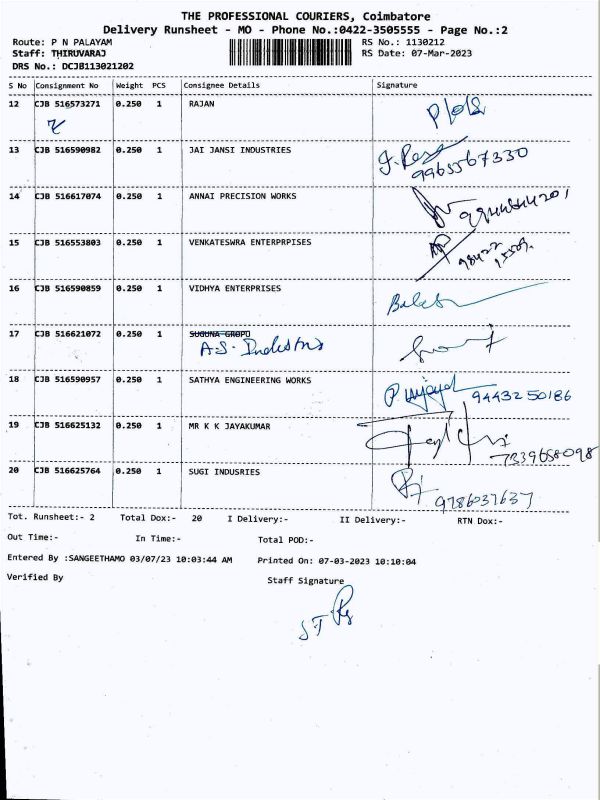 THE PROFESSIONAL COURIERS, Coimbatore
Delivery Runsheet - MO - Phone No.:0422-3505555 - Page No.:2
Route: P N PALAYAM RS No.: 1130212
Staff: THIRUVARAJ RS Date: 07-Mar-2023
DRS No.: DCJB113021202
S No Consignment No Weight PCS Consignee Details Signature
12 CJB 516573271 0.250 1 RAJAN
13 CJB 516590982 0.250 1 JAI JANSI INDUSTRIES
9965567330
14 CJB 516617074 0.250 1 ANNAI PRECISION WORKS
15 CJB 516553803 0.250 1 VENKATESWRA ENTERPRPISES
16 CJB 516590859 0.250 1 VIDHYA ENTERPRISES
17 CJB 516621072 0.250 1 SUGUNA GROPU
A.S. Industris
18 CJB 516590957 0.250 1 SATHYA ENGINEERING WORKS
9443250186
19 CJB 516625132 0.250 1 MR K K JAYAKUMAR
7339658098
20 CJB 516625764 0.250 1 SUGI INDUSRIES
9786037637
Tot. Runsheet:- 2 Total Dox:- 20 I Delivery:- II Delivery:- RTN Dox:-
Out Time:- In Time:- Total POD:-
Entered By :SANGEETHAMO 03/07/23 10:03:44 AM Printed On: 07-03-2023 10:10:04
Verified By Staff Signature